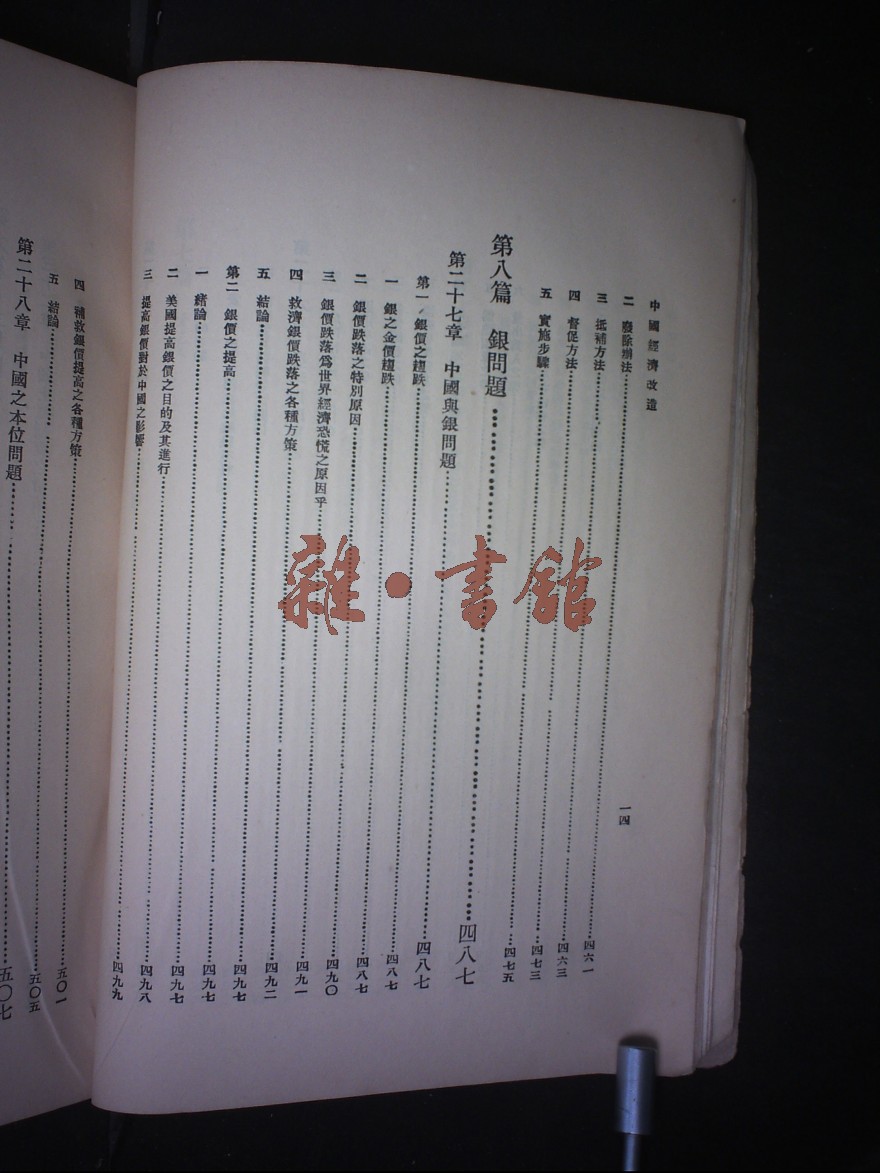 中國經濟改造
一四
二 廢除辦法……四六一
三 抵補方法……四六三
四 督促方法……四七三
五 實施步驟……四七五
第八篇 銀問題……四八七
第二十七章 中國與銀問題……四八七
第一 銀價之趨跌……四八七
一 銀之金價趨跌……四八七
二 銀價跌落之特別原因……四九〇
三 銀價跌落為世界經濟恐慌之原因乎……四九一
四 救濟銀價跌落之各種方策……四九二
五 結論……四九七
第二 銀價之提高……四九七
一 緒論……四九七
二 美國提高銀價之目的及其進行……四九八
三 提高銀價對於中國之影響……四九九
四 補救銀價提高之各種方策……五〇一
五 結論……五〇五
第二十八章 中國之本位問題……五〇七
雜·書館